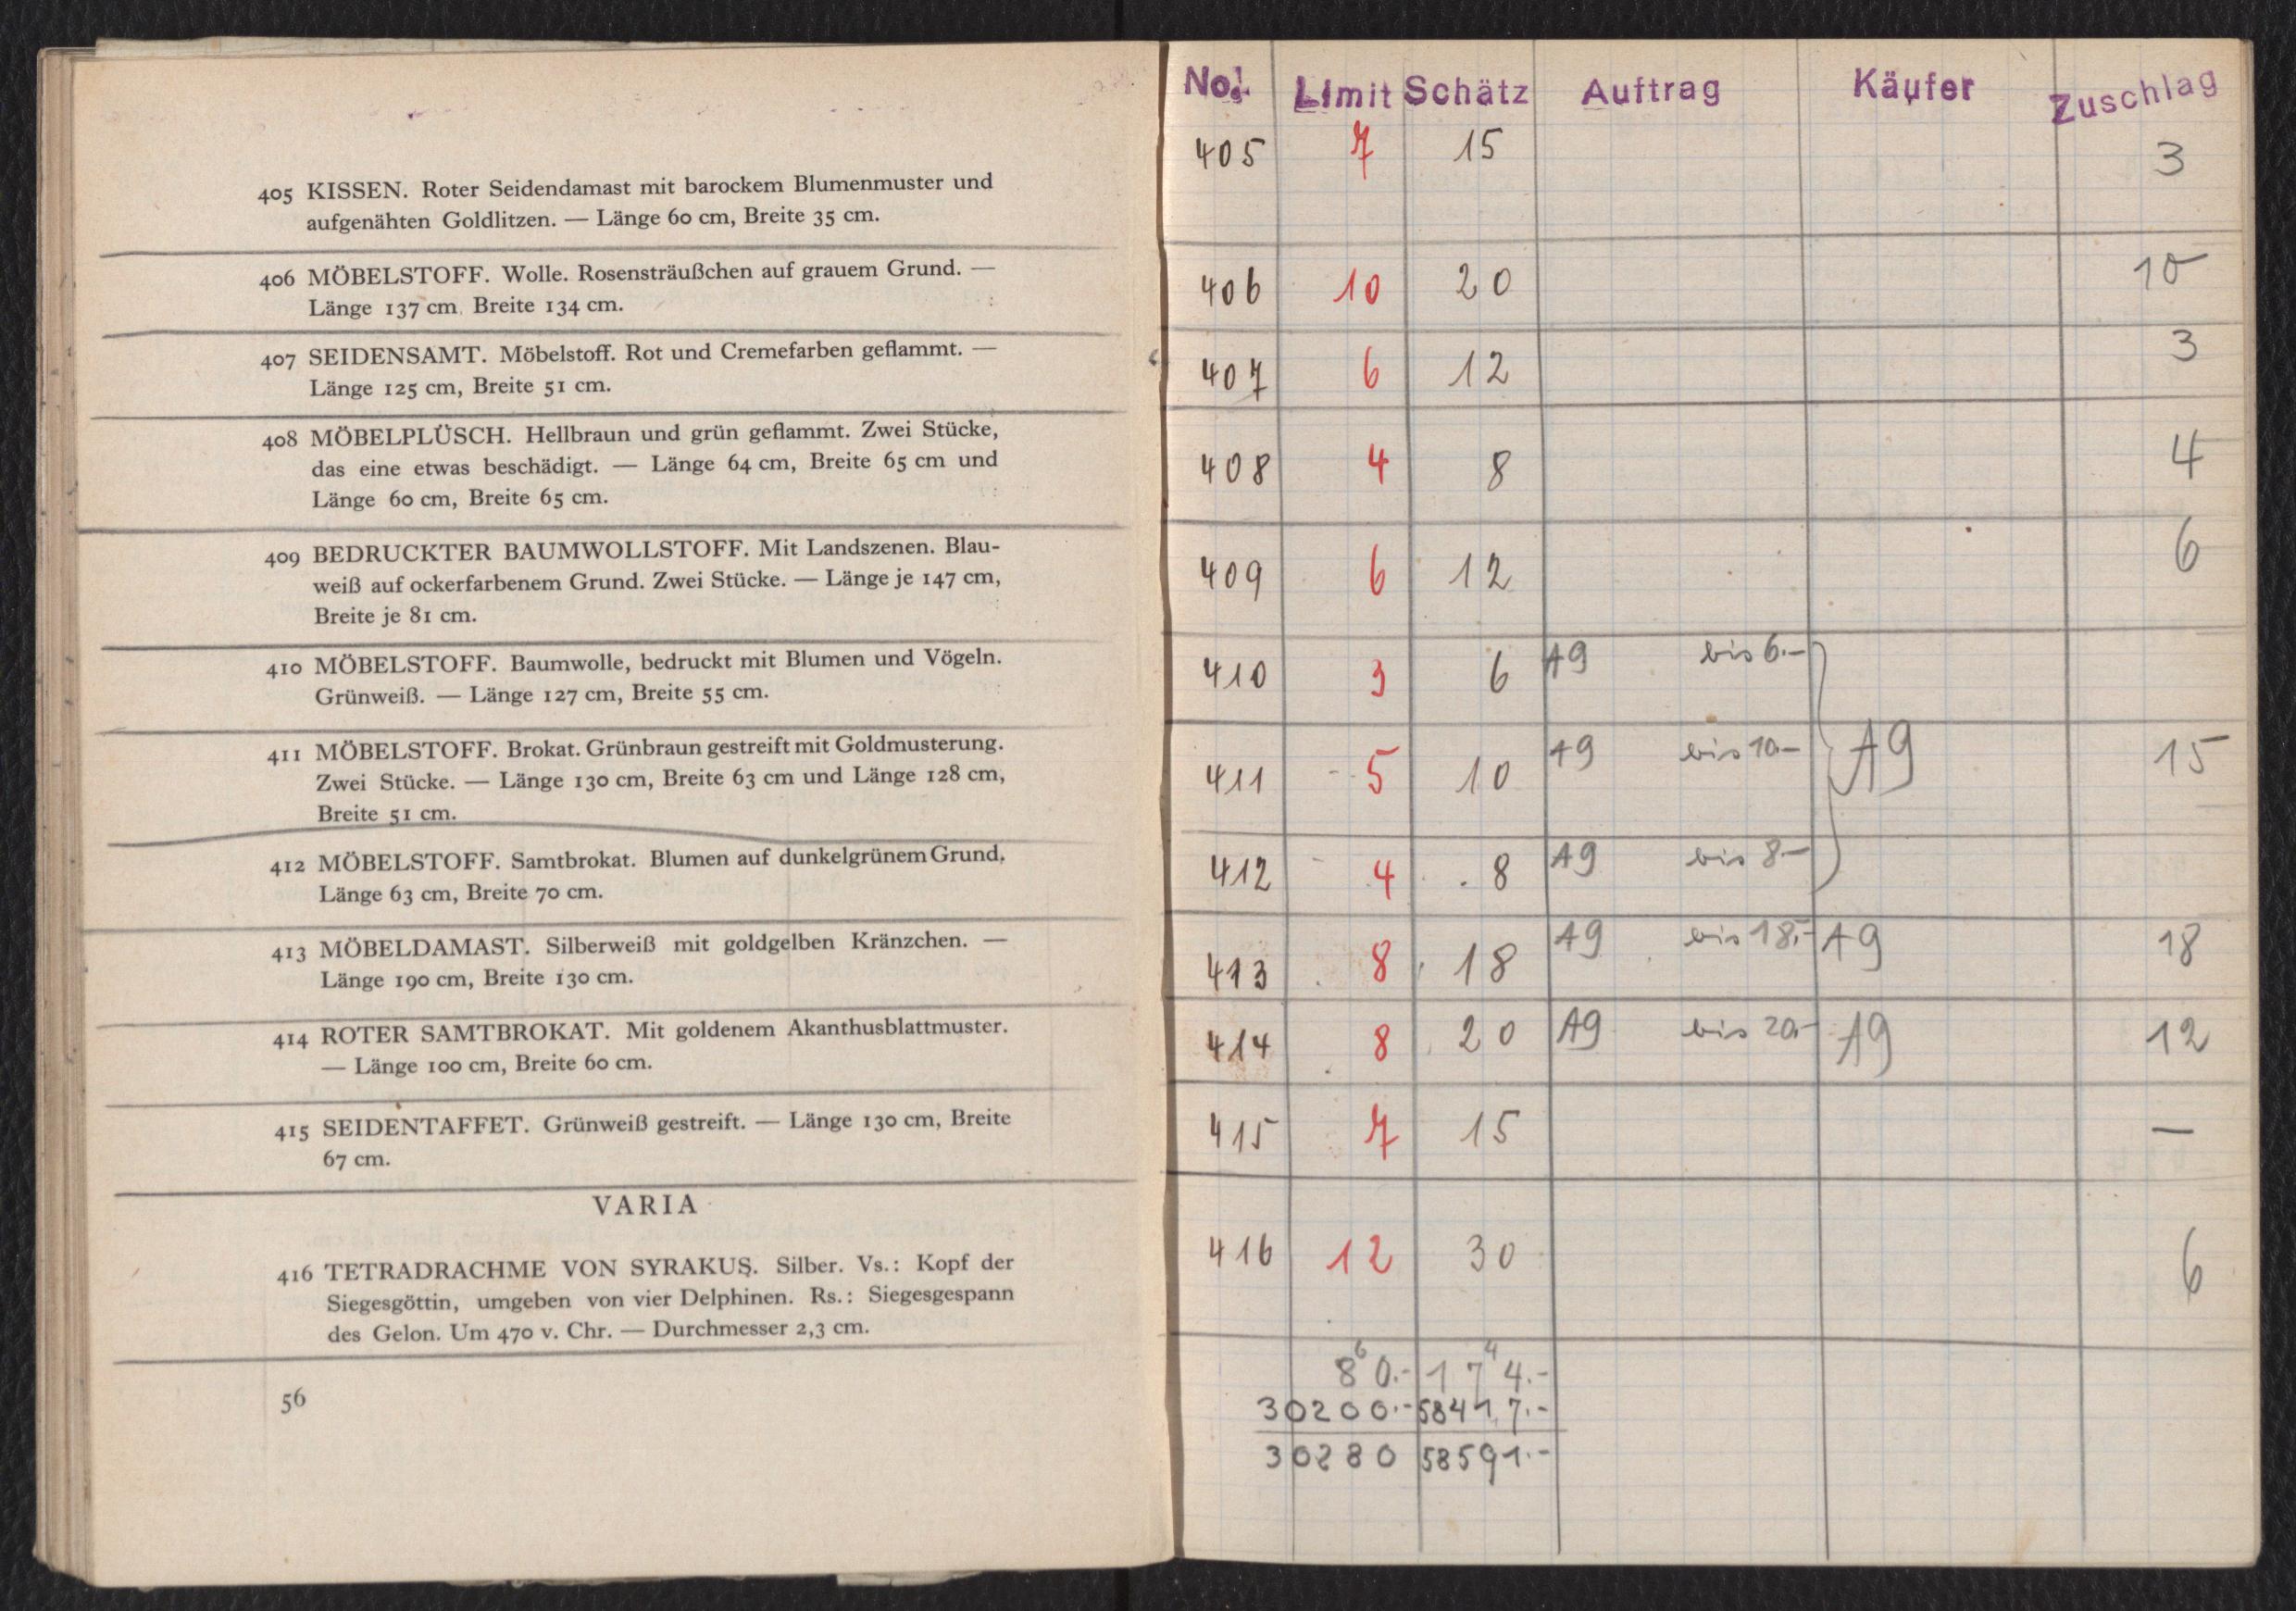 405 KISSEN. Roter Seidendamast mit barockem Blumenmuster und
aufgenähten Goldlitzen. — Länge 60 cm, Breite 35 cm.
406 MÖBELSTOFF. Wolle. Rosensträußchen auf grauem Grund. —
Länge 137 cm, Breite 134 cm.
407 SEIDENSAMT. Möbelstoff. Rot und Cremefarben geflammt. —
Länge 125 cm, Breite 51 cm.
408 MÖBELPLÜSCH. Hellbraun und grün geflammt. Zwei Stücke,
das eine etwas beschädigt. — Länge 64 cm, Breite 65 cm und
Länge 60 cm, Breite 65 cm.
409 BEDRUCKTER BAUMWOLLSTOFF. Mit Landszenen. Blau-
weiß auf ockerfarbenem Grund. Zwei Stücke. — Länge je 147 cm,
Breite je 81 cm.
410 MÖBELSTOFF. Baumwolle, bedruckt mit Blumen und Vögeln.
Grünweiß. — Länge 127 cm, Breite 55 cm.
411 MÖBELSTOFF. Brokat. Grünbraun gestreift mit Goldmusterung.
Zwei Stücke. — Länge 130 cm, Breite 63 cm und Länge 128 cm,
Breite 51 cm.
412 MÖBELSTOFF. Samtbrokat. Blumen auf dunkelgrünem Grund.
Länge 63 cm, Breite 70 cm.
413 MÖBELDAMAST. Silberweiß mit goldgelben Kränzchen. —
Länge 190 cm, Breite 130 cm.
414 ROTER SAMTBROKAT. Mit goldenem Akanthusblattmuster.
— Länge 100 cm, Breite 60 cm.
415 SEIDENTAFFET. Grünweiß gestreift. — Länge 130 cm, Breite
67 cm.
VARIA
416 TETRADRACHME VON SYRAKUS. Silber. Vs.: Kopf der
Siegesgöttin, umgeben von vier Delphinen. Rs.: Siegesgespann
des Gelon. Um 470 v. Chr. — Durchmesser 2,3 cm.
56
No. Limit Schätz Auftrag Käufer Zuschlag
405 7 15 3
406 10 20 10
407 6 12 3
408 4 8 4
409 6 12 6
410 3 6 A9 bis 6.-
411 5 10 A9 bis 10- A9 15
412 4 8 A9 bis 8-
413 8 18 A9 bis 18.- A9 18
414 8 20 A9 bis 20,- A9 12
415 7 15 —
416 12 30 6
6 4
80.- 174.-
30200.- 58417.-
30280 58591.-